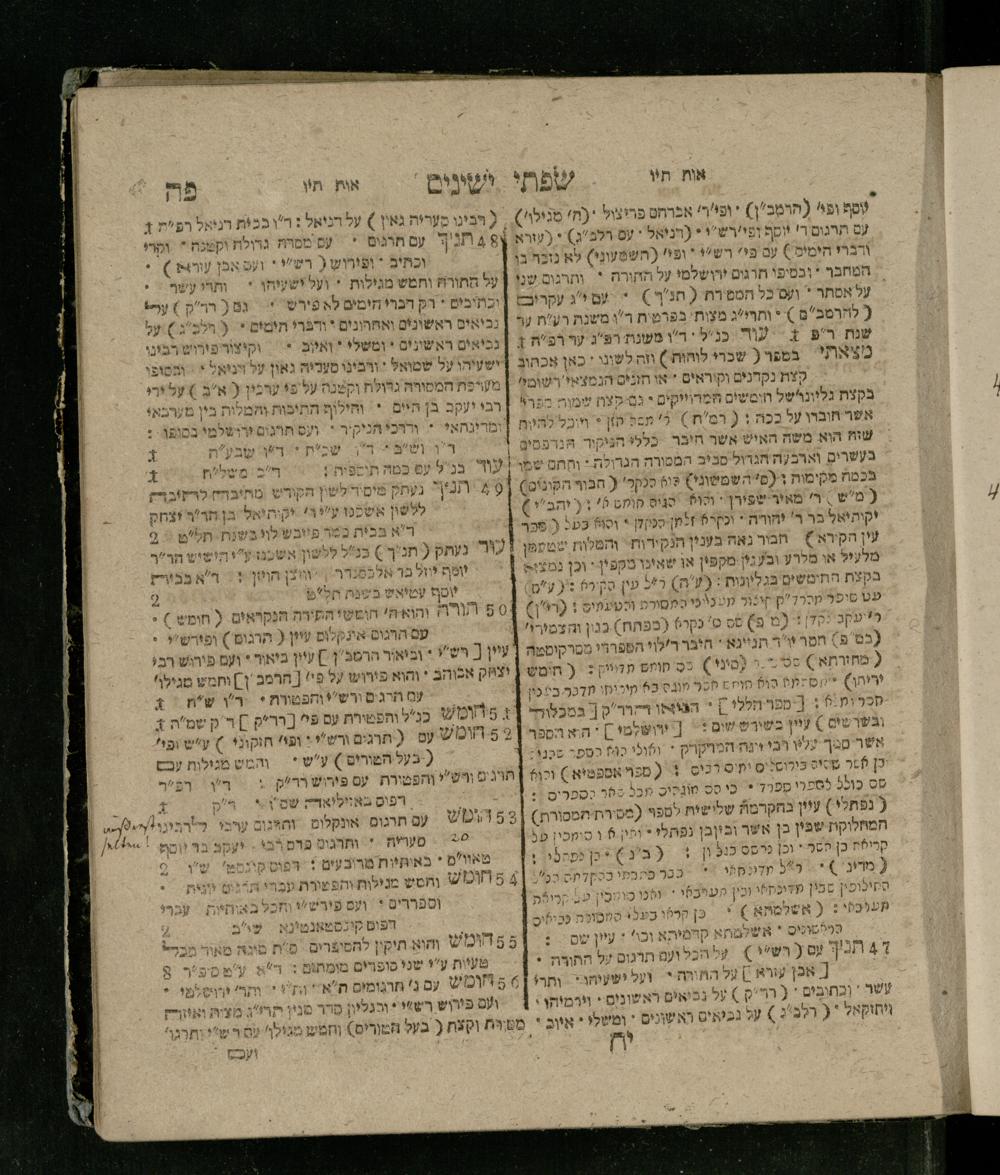 אות תיו שפתי ישינים אות תיו פה
יוסף ופי' (הרמב"ן) ופי' ר' אברהם פריצול (ח' מגילו')
עם תרגום ר' יוסף ופי' רש"י (דניאל עם רלב"ג) (עזרא
ודברי הימים) עם פי' רש"י ופי' (השמעוני) לא נזכר בו
המחבר ובסופו תרגום ירושלמי על התורה ותרגום שני
על אסתר ועם כל המסרת (תנ"ך) עם י"ג עקרים
(להרמב"ם) ותרי"ג מצות בפרטות ד"ו משנת רע"ח עד
שנת ר"פ עוד כנ"ל ד"ו משנת רפ"ג עד רפ"ה
מצאתי בספר (שברי לוחות) וזה לשונו כאן אכתוב
קצת נקדנים וקוראים או חזנים הנמצאי' רשומי'
בקצת גליונו' של חומשים המדוייקים גם קצת שמות ספרי'
אשר חוברו על ככה: (רמ"ח) ר' משה חזן ויוכל להיות
שזה הוא משה האיש אשר חיבר כללי הניקוד הנדפסים
בעשרים וארבעה הגדול סביב המסורה הגדולה וחתם שמו
בכמה מקומות: (ס' השמשוני) הוא הנקר' (חבור הקונים)
(מ"ש) ר' מאיר שפירן והוא הגיה חומש א': (יהב"י)
יקותיאל בר ר' יהודה ונקרא זלמן הנקדן והוא בעל (ספר
עין הקורא) חבור נאה בענין הנקודות והמלות שטעמן
מלעיל או מלרע ובענין מקפין או שאינו מקפין וכן נמצא
בקצת החומשים בגליונות: (ע"ה) ר"ל עין הקורא: (ע"ס)
עט סופר מהרד"ק חיבור מענייני המסורת והטעמים: (רי"ן)
ר' יעקב נקדן: (מ פ) סס ס' נקרא (מפתח) כגון והצמידי'
(במ"פ) חסר יו"ד תניינא חיבר ר' לוי הספרדי מסרקוסטה
(מחזרתא) (סיני) סס חומש מדוייק: (חומש
יריחו)
הוא [ספר הללי] הביאו הרד"ק [במכלול
ובשרשים) עיין בשורש שום: [ירושלמי] הוא הספר
אשר סמך עליו רבי יונה המדקדק ואולי הוא הספר שכתב
בן אשר שהיה בירושלים ימים רבים: (ספר אספמיא) והוא
סס כולל לספרי ספרד כי הס מוגהים מכל שאר הספרים:
(נפתלי) עיין בהקדמה שלישית לספר (מסורת המסורת)
המחלוקת שבין בן אשר ובין בן נפתלי ואין א נו סומכין על
קריאת בן אשר וכן נרשם בגליון: (ב"נ) בן נפתלי:
(מדינ') ר"ל מדינחאי כבר כתבתי בהקדמה הנ"ל
החילופין שבין מדינחאי ובין מערבאי ואנו סומכין על קריאת
מערבאי: (אשלמתא) כן קראו בעלי המסורה נביאים
הראשונים אשלמתא קדמיתא וכו' עיין שם:
47 תניך עם (רש"י) על הכל ועם תרגום על התורה
[אבן עזרא] על התורה ועל ישעיהו ותרי
עשר וכתובים (רד"ק) על נביאים ראשונים וירמיהו
ויחזקאל (רלב"ג) על נביאים ראשונים ומשלי איוב
יח
(רבינו סעריה גאון) על דניאל: ד"ו בבית דניאל רפ"ח
48 תניך עם תרגום עם מסרה גדולה וקטנה וקרי
וכתיב ופירוש (רש"י ועם אבן עזרא)
על התורה וחמש מגילות ועל ישעיהו ותרי עשר
וכתובים רק דברי הימים לא פירש גם (רד"ק) על
נביאים ראשונים ואחרונים ודברי הימים (רלב"ג) על
נביאים ראשונים ומשלי ואיוב וקיצור פירוש רבינו
ישעיהו על שמואל ורבינו סעדיה גאון על דניאל ובסופו
מערכת המסורה גדולה וקטנה על פי ערכין (א"ב) על ידי
רבי יעקב בן חיים וחילוף התיבות והמלות בין מערבאי
ומדינחאי ודרכי הניקוד ועם תרגום ירושלמי בסופו:
ד"ו וש"ב ד"ו שכ"ח ד"ו שבע"ה
עוד כנ"ל עם כמה תוספות: ד"ב משל"ח
49 תניך נעתק מיסוד לשון הקודש מתיבה לתיבה
ללשון אשכנז ע"י ר' יקותיאל בן הר"ר יצחק
ד"א בבית כמר פייבש לוי בשנת תל"ט 2
עוד נעתק (תנ"ך) כנ"ל ללשון אשכנז ע"י הישיש הר"ר
יוסף יוזל בר אלכסנדר וויצן הויזן: ד"א בבית
יוסף עטיאש בשנת תל"ט 2
50 תורה והוא ה' חומשי התורה הנקראים (חומש)
עם תרגום אונקלום עיין (תרגום) ופירש"י
עיין [רש"י וביאור הרמב"ן] עיין ביאור ועם פירוש רבי
יצחק אבוהב והוא פירוש על פי' [הרמב"ן] וחמש מגילו'
עם תרגום ורש"י והפטורה ד"ו ש"ח
51 חומש כנ"ל והפטרת עם פי' [רד"ק] ד"ק שמ"ח
52 חומש עם (תרגום ורש"י ופי' חזקוני) ע"ש ופי'
(בעל הטורים) ע"ש וחמש מגילות עם
תרגום ורש"י והפטורת עם פירוש רד"ק: ד"ו רפ"ד
דפוס באזיליאה שס"ו ד"ק
53 חומש עם תרגום אונקלום ותרגום ערבי לרבינו
סעריה ותרגום פרס רבי יעקב בר יוסף
טאוו"ס באותיות מרובעים: דפוס קוגסט' ש"ו 2
54 חומש וחמש מגילות והפטורת עברי תרגום יונית
וספרדים ועם פירש"י והכל באותיות עברי
דפוס קונסטאנטינא שו"ב 2
55 חומש והוא תיקון להסופרים ס"ת מוגה מאוד מכל
טעיות ע"י שני סופרים מומחים: ד"א ע"ט ספ"ר 8
56 חומש עם ג' תרגומים ת"א ות"י ותר' ירושלמי
ועם פירוש רש"י ובגליון סדר מנין תרי"ג מצות ואיזה
מסורת וקצת (בעל הטורים) וחמש מגילו' עם רש"י ותרגו'
ועם